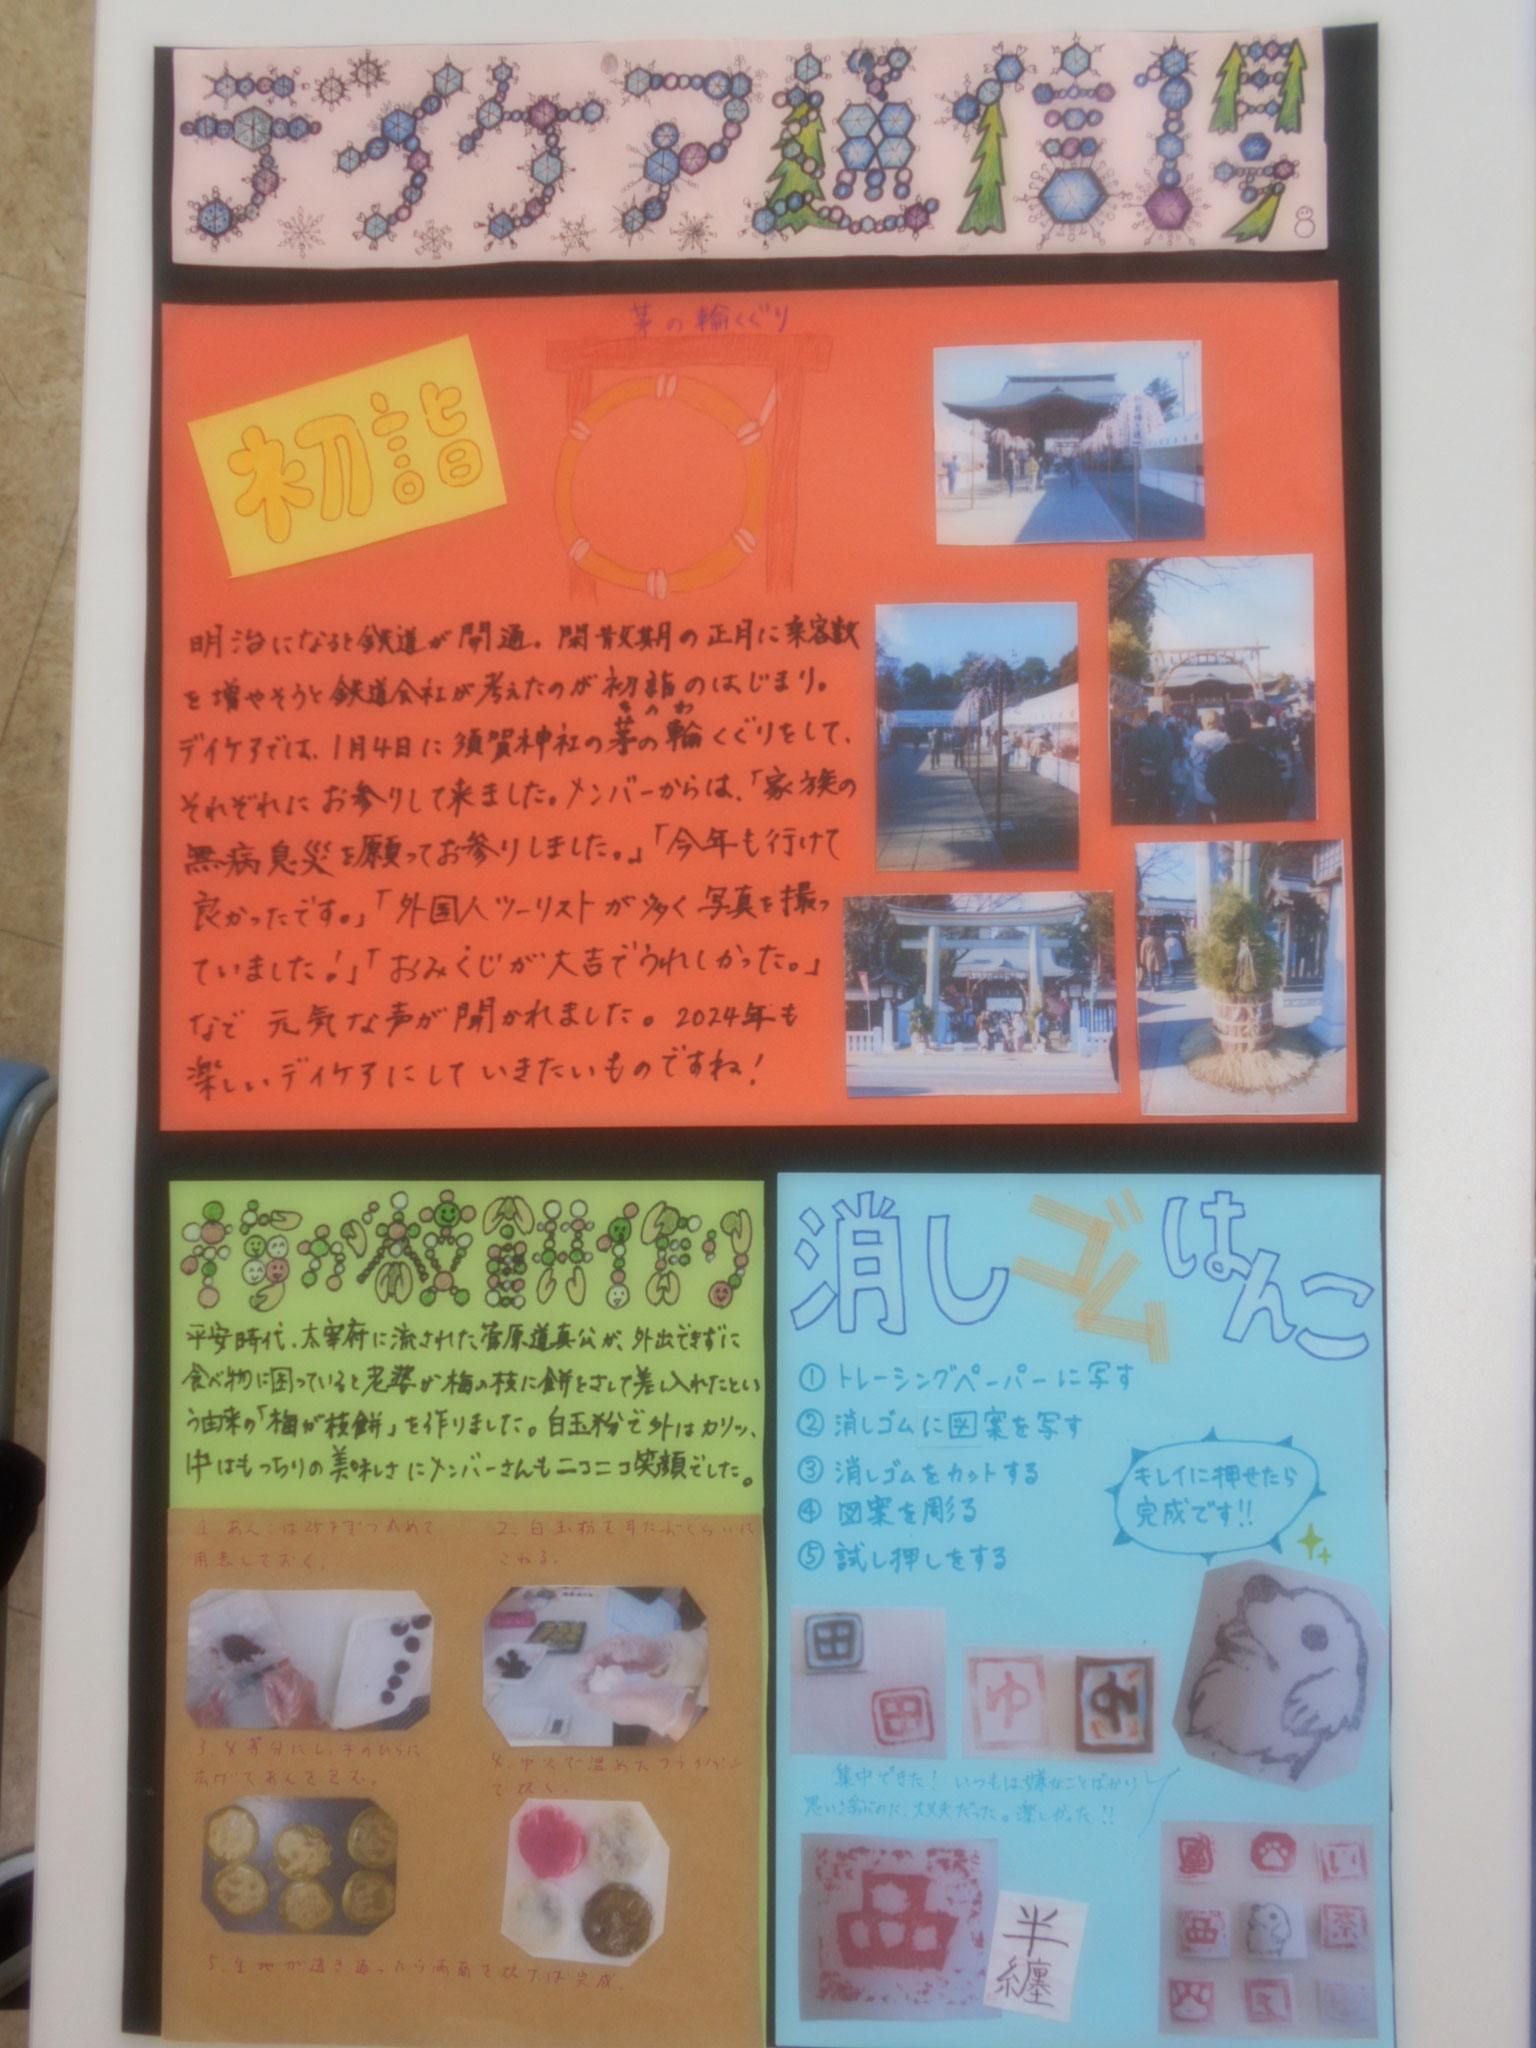 デイケア通信1月号
初詣
茅の輪くぐり
明治になると鉄道が開通。閑散期の正月に乗客数
を増やそうと鉄道会社が考えたのが初詣のはじまり。
ちのわ
デイケアでは、1月4日に須賀神社の茅の輪くぐりをして、
それぞれにお参りして来ました。メンバーからは、「家族の
無病息災を願ってお参りしました。」「今年も行けて
良かったです。」「外国人ツーリストが多く写真を撮っ
ていました!」「おみくじが大吉でうれしかった。」
などで元気な声が聞かれました。2024年も
楽しいデイケアにしていきたいものですね!
梅が枝餅作り
平安時代、太宰府に流された菅原道真公が、外出できずに
食べ物に困っていると老婆が梅の枝に餅をさして差し入れたとい
う由来の「梅が枝餅」を作りました。白玉粉で外はカリッ、
中はもっちりの美味しさにメンバーさんもニコニコ笑顔でした。
1. あんこは25gずつ丸めて
用意しておく。
2. 白玉粉を耳たぶくらいに
こねる。
3. 4等分にし、手のひらに
広げてあんを包む。
4. 中火で温めたフライパン
で焼く。
5. 生地が透き通ったら両面を焼けば完成。
消しゴムはんこ
① トレーシングペーパーに写す
② 消しゴムに図案を写す
③ 消しゴムをカットする
④ 図案を彫る
⑤ 試し押しをする
キレイに押せたら
完成です!!
田
田
ゆ
ゆ
集中できた! いつもは嫌なことばかり
思い浮ぶのに、大丈夫だった。楽しかった!!
半
纏
い